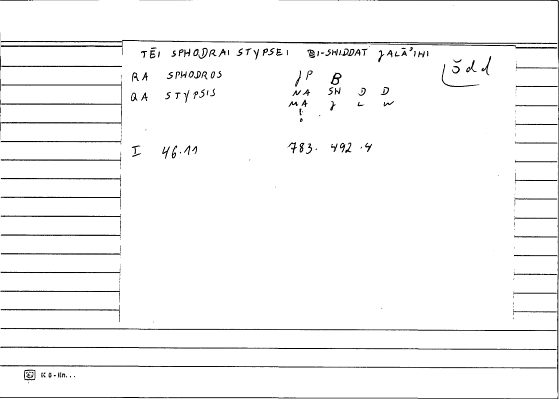 TĒI SPHODRAI STYPSEI BI-SHIDDAT JALĀ'IHI
šdd
RA SPHODROS JP B
QA STYPSIS NA SH D D
MA J L W
I 46.11 783. 492.4